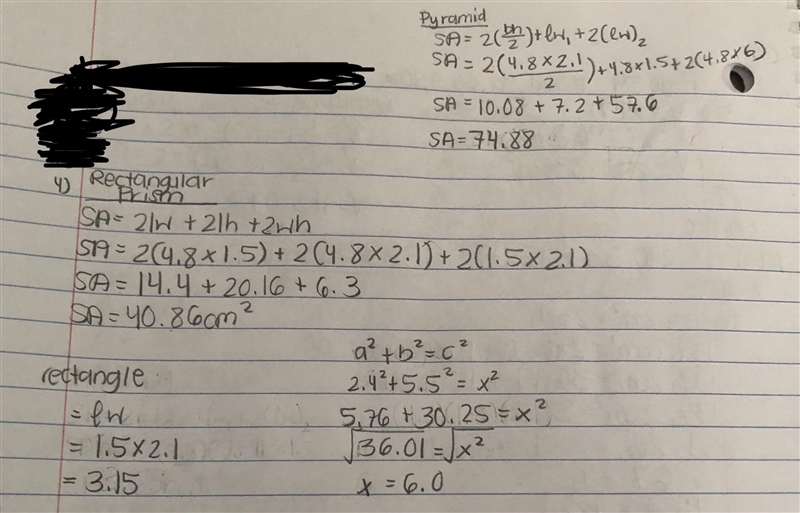 Pyramid
SA = 2(bh/2) + lw₁ + 2(lw)₂
SA = 2(4.8 × 2.1/2) + 4.8 × 1.5 + 2(4.8 × 6)
SA = 10.08 + 7.2 + 57.6
SA = 74.88
4) Rectangular
Prism
SA = 2lw + 2lh + 2wh
SA = 2(4.8 × 1.5) + 2(4.8 × 2.1) + 2(1.5 × 2.1)
SA = 14.4 + 20.16 + 6.3
SA = 40.86cm²
rectangle
= lw
= 1.5 × 2.1
= 3.15
a² + b² = c²
2.4² + 5.5² = x²
5.76 + 30.25 = x²
√36.01 = √x²
x = 6.0